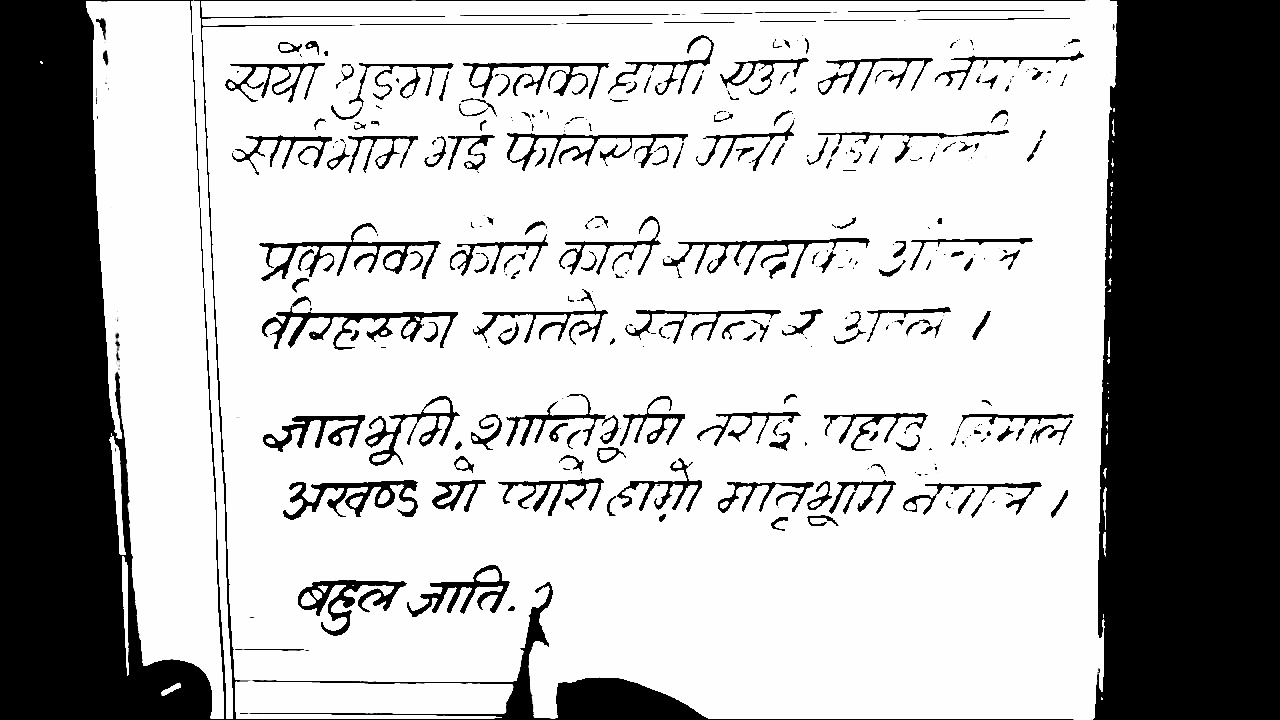 सयौं थुङ्गा फूलका हामी एउटै माला नेपाली
सार्वभौम भई फैलिएका मेची महाकाली ।
प्रकृतिका कोटी कोटी सम्पदाको आंचल
वीरहरुका रगतले, स्वतन्त्र र अटल ।
ज्ञानभूमि, शान्तिभूमि तराई, पहाड, हिमाल
अखण्ड यो प्यारो हाम्रो मातृभूमि नेपाल ।
बहुल जाति,